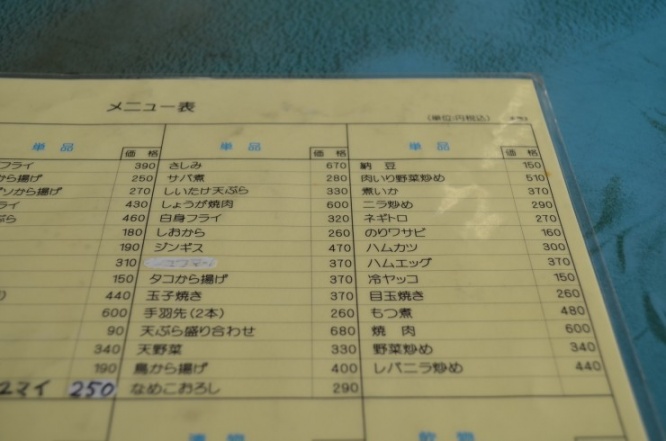 メニュー表
(単位:円税込)
単品 価格 単品 価格 単品 価格
フライ 390 さしみ 670 納豆 150
から揚げ 250 サバ煮 280 肉いり野菜炒め 510
ゲソから揚げ 270 しいたけ天ぷら 330 煮いか 370
ライ 430 しょうが焼肉 600 ニラ炒め 290
ぷら 460 白身フライ 320 ネギトロ 270
180 しおから 260 のりワサビ 160
190 ジンギス 470 ハムカツ 300
310 370 ハムエッグ 370
150 タコから揚げ 370 冷ヤッコ 150
440 玉子焼き 370 目玉焼き 260
600 手羽先(2本) 260 もつ煮 480
90 天ぷら盛り合わせ 680 焼肉 600
340 天野菜 330 野菜炒め 340
190 鳥から揚げ 400 レバニラ炒め 440
マイ 250 なめこおろし 290